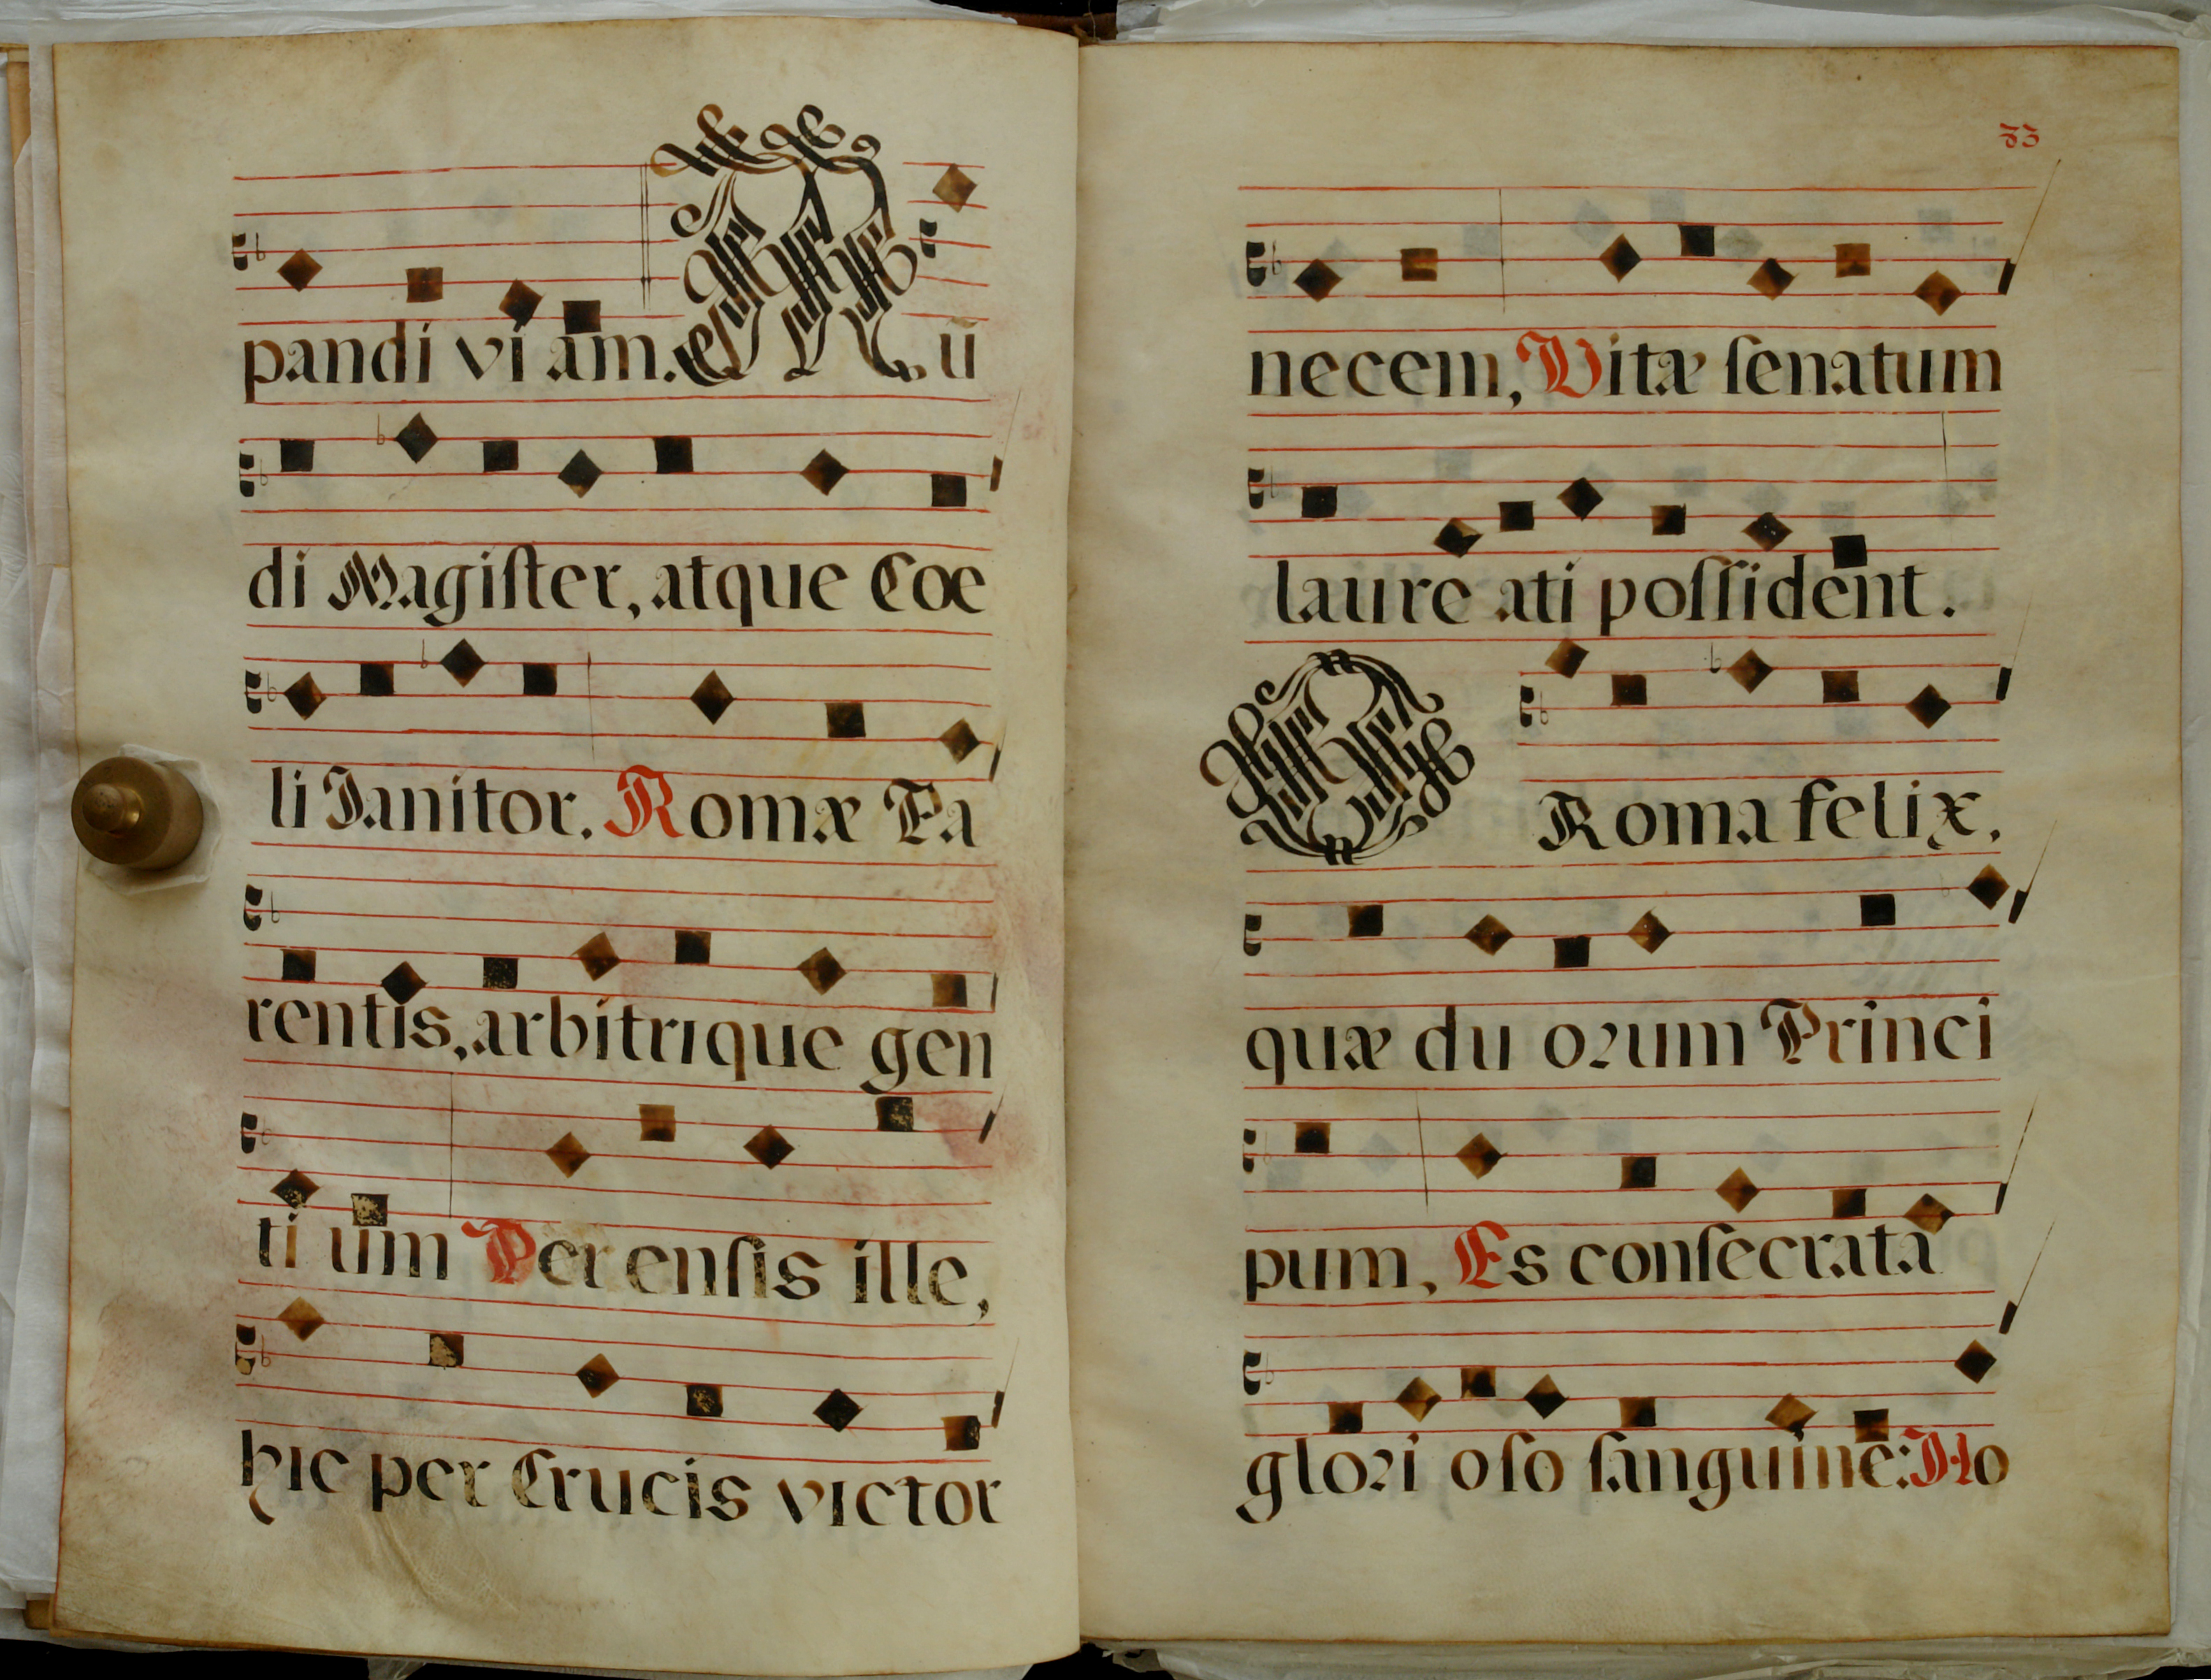 pandi vi am. Mū
di Magiſter, atque Coe
li Janitor. Romæ Pa
rentis, arbitrique gen
ti um Per enſis ille,
hic per Crucis victor
55
necem, Vitæ ſenatum
laure ati poſſident.
O Roma felix,
quæ du oꝛum Princi
pum, Es conſecrata
gloꝛi oſo ſanguine: Ho